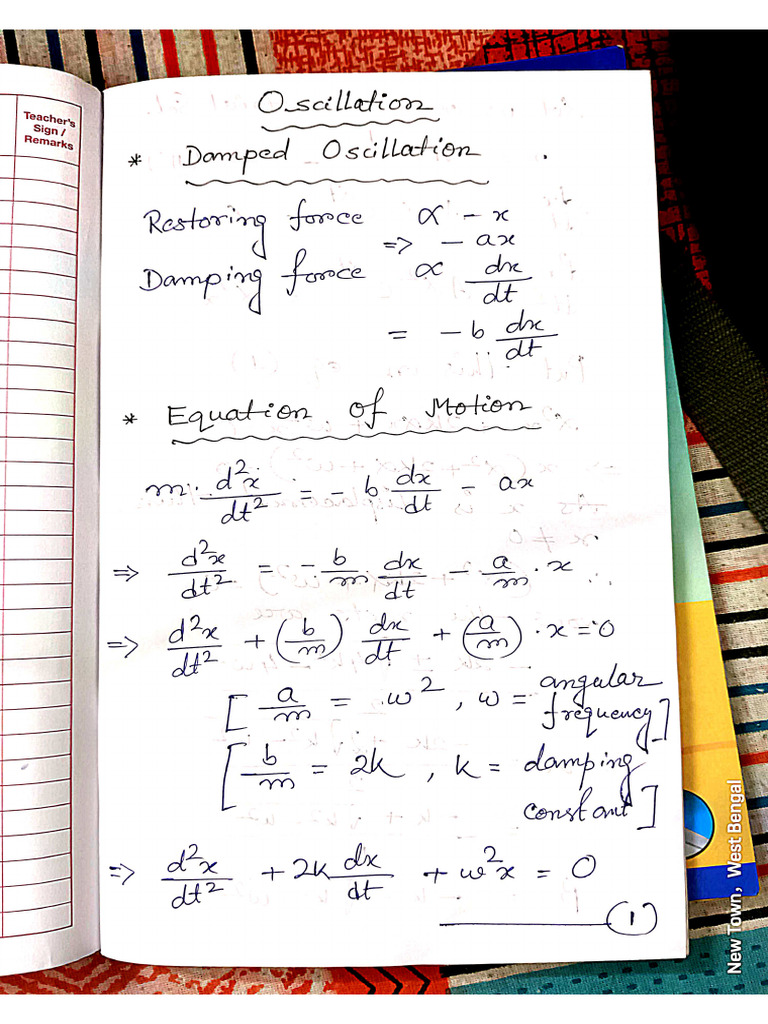 Teacher's
Sign /
Remarks
Oscillation
* Damped Oscillation
Restoring force ∝ - x
=> - ax
Damping force ∝ dx/dt
= - b dx/dt
* Equation of Motion
m · d²x/dt² = - b dx/dt - ax
=> d²x/dt² = - b/m · dx/dt - a/m · x
=> d²x/dt² + (b/m) dx/dt + (a/m) · x = 0
[ a/m = ω² , ω = angular
frequency ]
[ b/m = 2k , k = damping
constant ]
=> d²x/dt² + 2k dx/dt + ω²x = 0
(1)
New Town, West Bengal